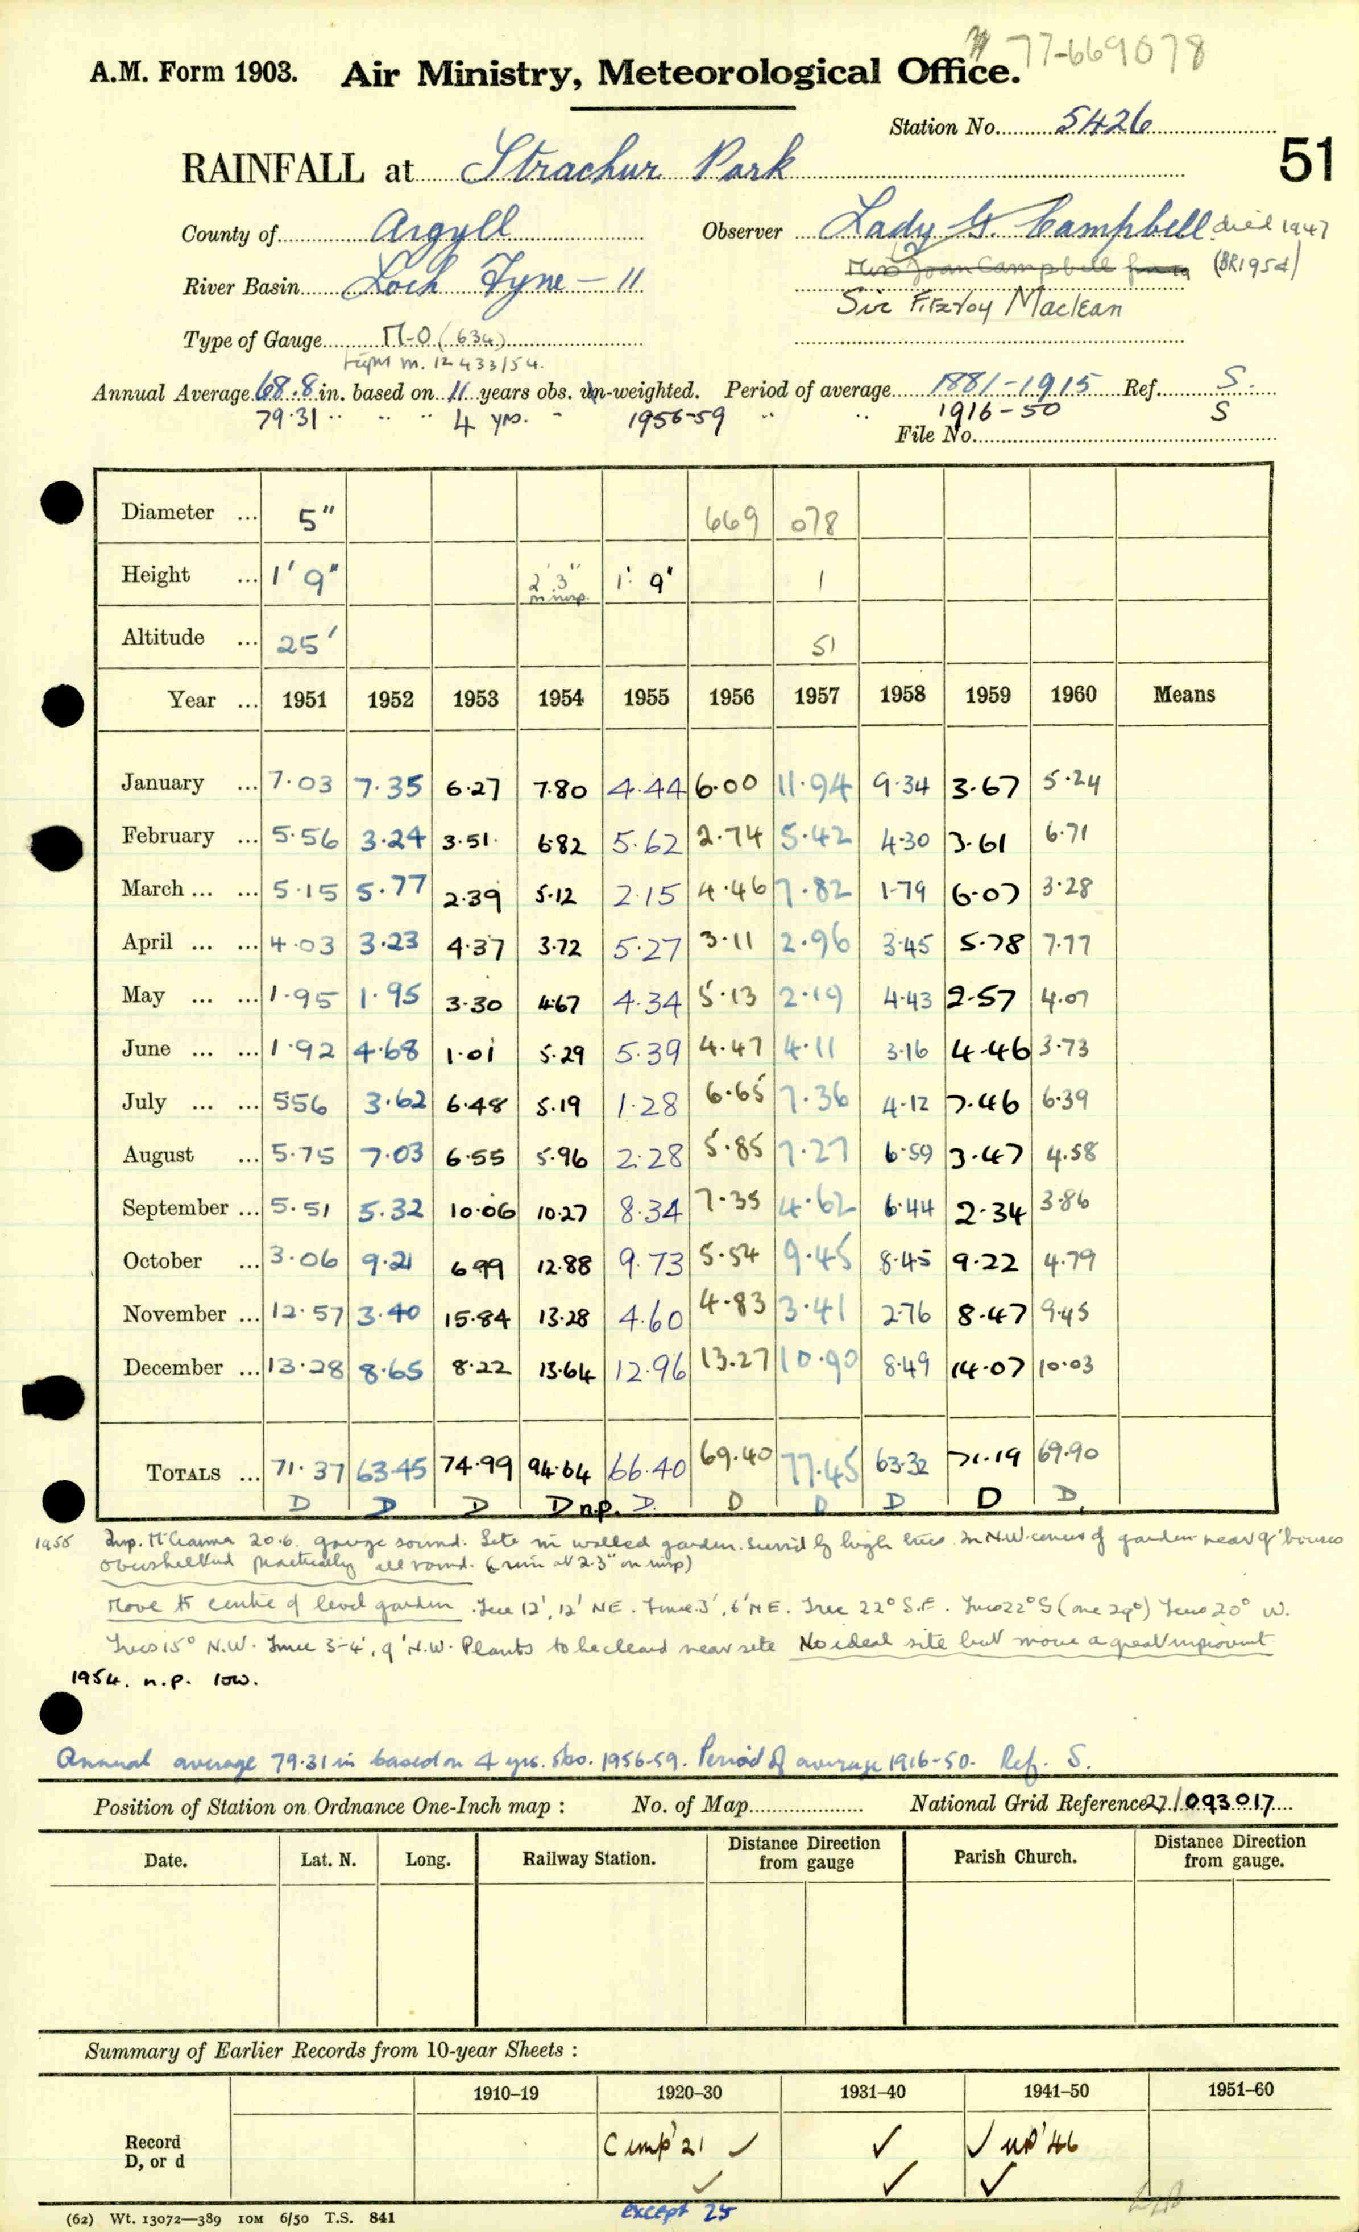 77-669078
A.M. Form 1903. Air Ministry, Meteorological Office.
Station No. 5426
51
RAINFALL at Strachur Park
County of Argyll Observer Lady G. Campbell died 1947
Miss Joan Campbell (BR1954)
River Basin Loch Fyne - 11
Sir Fitzroy Maclean
Type of Gauge M-O (634)
m. 12433/54.
Annual Average 68.8 in. based on 11 years obs. un-weighted. Period of average 1881-1915 Ref. S.
79.31 " " " 4 yrs. " 1956-59 " " 1916-50 S
File No.
Diameter ... 5" 669 078
Height ... 1' 9" 2' 3" on insp. 1' 9" 1
Altitude ... 25' 51
Year ... 1951 1952 1953 1954 1955 1956 1957 1958 1959 1960 Means
January ... 7.03 7.35 6.27 7.80 4.44 6.00 11.94 9.34 3.67 5.24
February ... 5.56 3.24 3.51 6.82 5.62 2.74 5.42 4.30 3.61 6.71
March ... ... 5.15 5.77 2.39 5.12 2.15 4.46 7.82 1.79 6.07 3.28
April ... ... 4.03 3.23 4.37 3.72 5.27 3.11 2.96 3.45 5.78 7.77
May ... ... 1.95 1.95 3.30 4.67 4.34 5.13 2.19 4.43 2.57 4.07
June ... ... 1.92 4.68 1.01 5.29 5.39 4.47 4.11 3.16 4.46 3.73
July ... ... 5.56 3.62 6.48 5.19 1.28 6.65 7.36 4.12 7.46 6.39
August ... 5.75 7.03 6.55 5.96 2.28 5.85 7.27 6.59 3.47 4.58
September ... 5.51 5.32 10.06 10.27 8.34 7.35 4.62 6.44 2.34 3.86
October ... 3.06 9.21 6.99 12.88 9.73 5.54 9.45 8.45 9.22 4.79
November ... 12.57 3.40 15.84 13.28 4.60 4.83 3.41 2.76 8.47 9.45
December ... 13.28 8.65 8.22 13.64 12.96 13.27 10.90 8.49 14.07 10.03
TOTALS ... 71.37 63.45 74.99 94.64 66.40 69.40 77.45 63.32 71.19 69.90
D D D D n.p. D D D D D D
1955 Insp. 20.6. gauge sound. Site in walled garden. Surr'd by high trees. In N.W. corner of garden near g'houses
overshelt'd practically all round. (rim at 2.3" on insp)
Move to centre of level garden. Tree 12', 12' NE. 3', 6' NE. Tree 22° S.E. Trees 22° S (one 29°) Trees 20° W.
Trees 15° N.W. 3-4', 9' N.W. Plants to be cleared near site No ideal site but move a great improv'nt
1954. n.p. low.
Annual average 79.31 in based on 4 yrs. obs. 1956-59. Period of average 1916-50. Ref. S.
Position of Station on Ordnance One-Inch map : No. of Map National Grid Reference 27/093017
Date. Lat. N. Long. Railway Station. Distance Direction from gauge Parish Church. Distance Direction from gauge.
Summary of Earlier Records from 10-year Sheets :
1910-19 1920-30 1931-40 1941-50 1951-60
Record C imp' 21 ✓ ✓ ✓ '46
D, or d ✓ ✓ ✓
except 25
(62) Wt. 13072—389 10M 6/50 T.S. 841